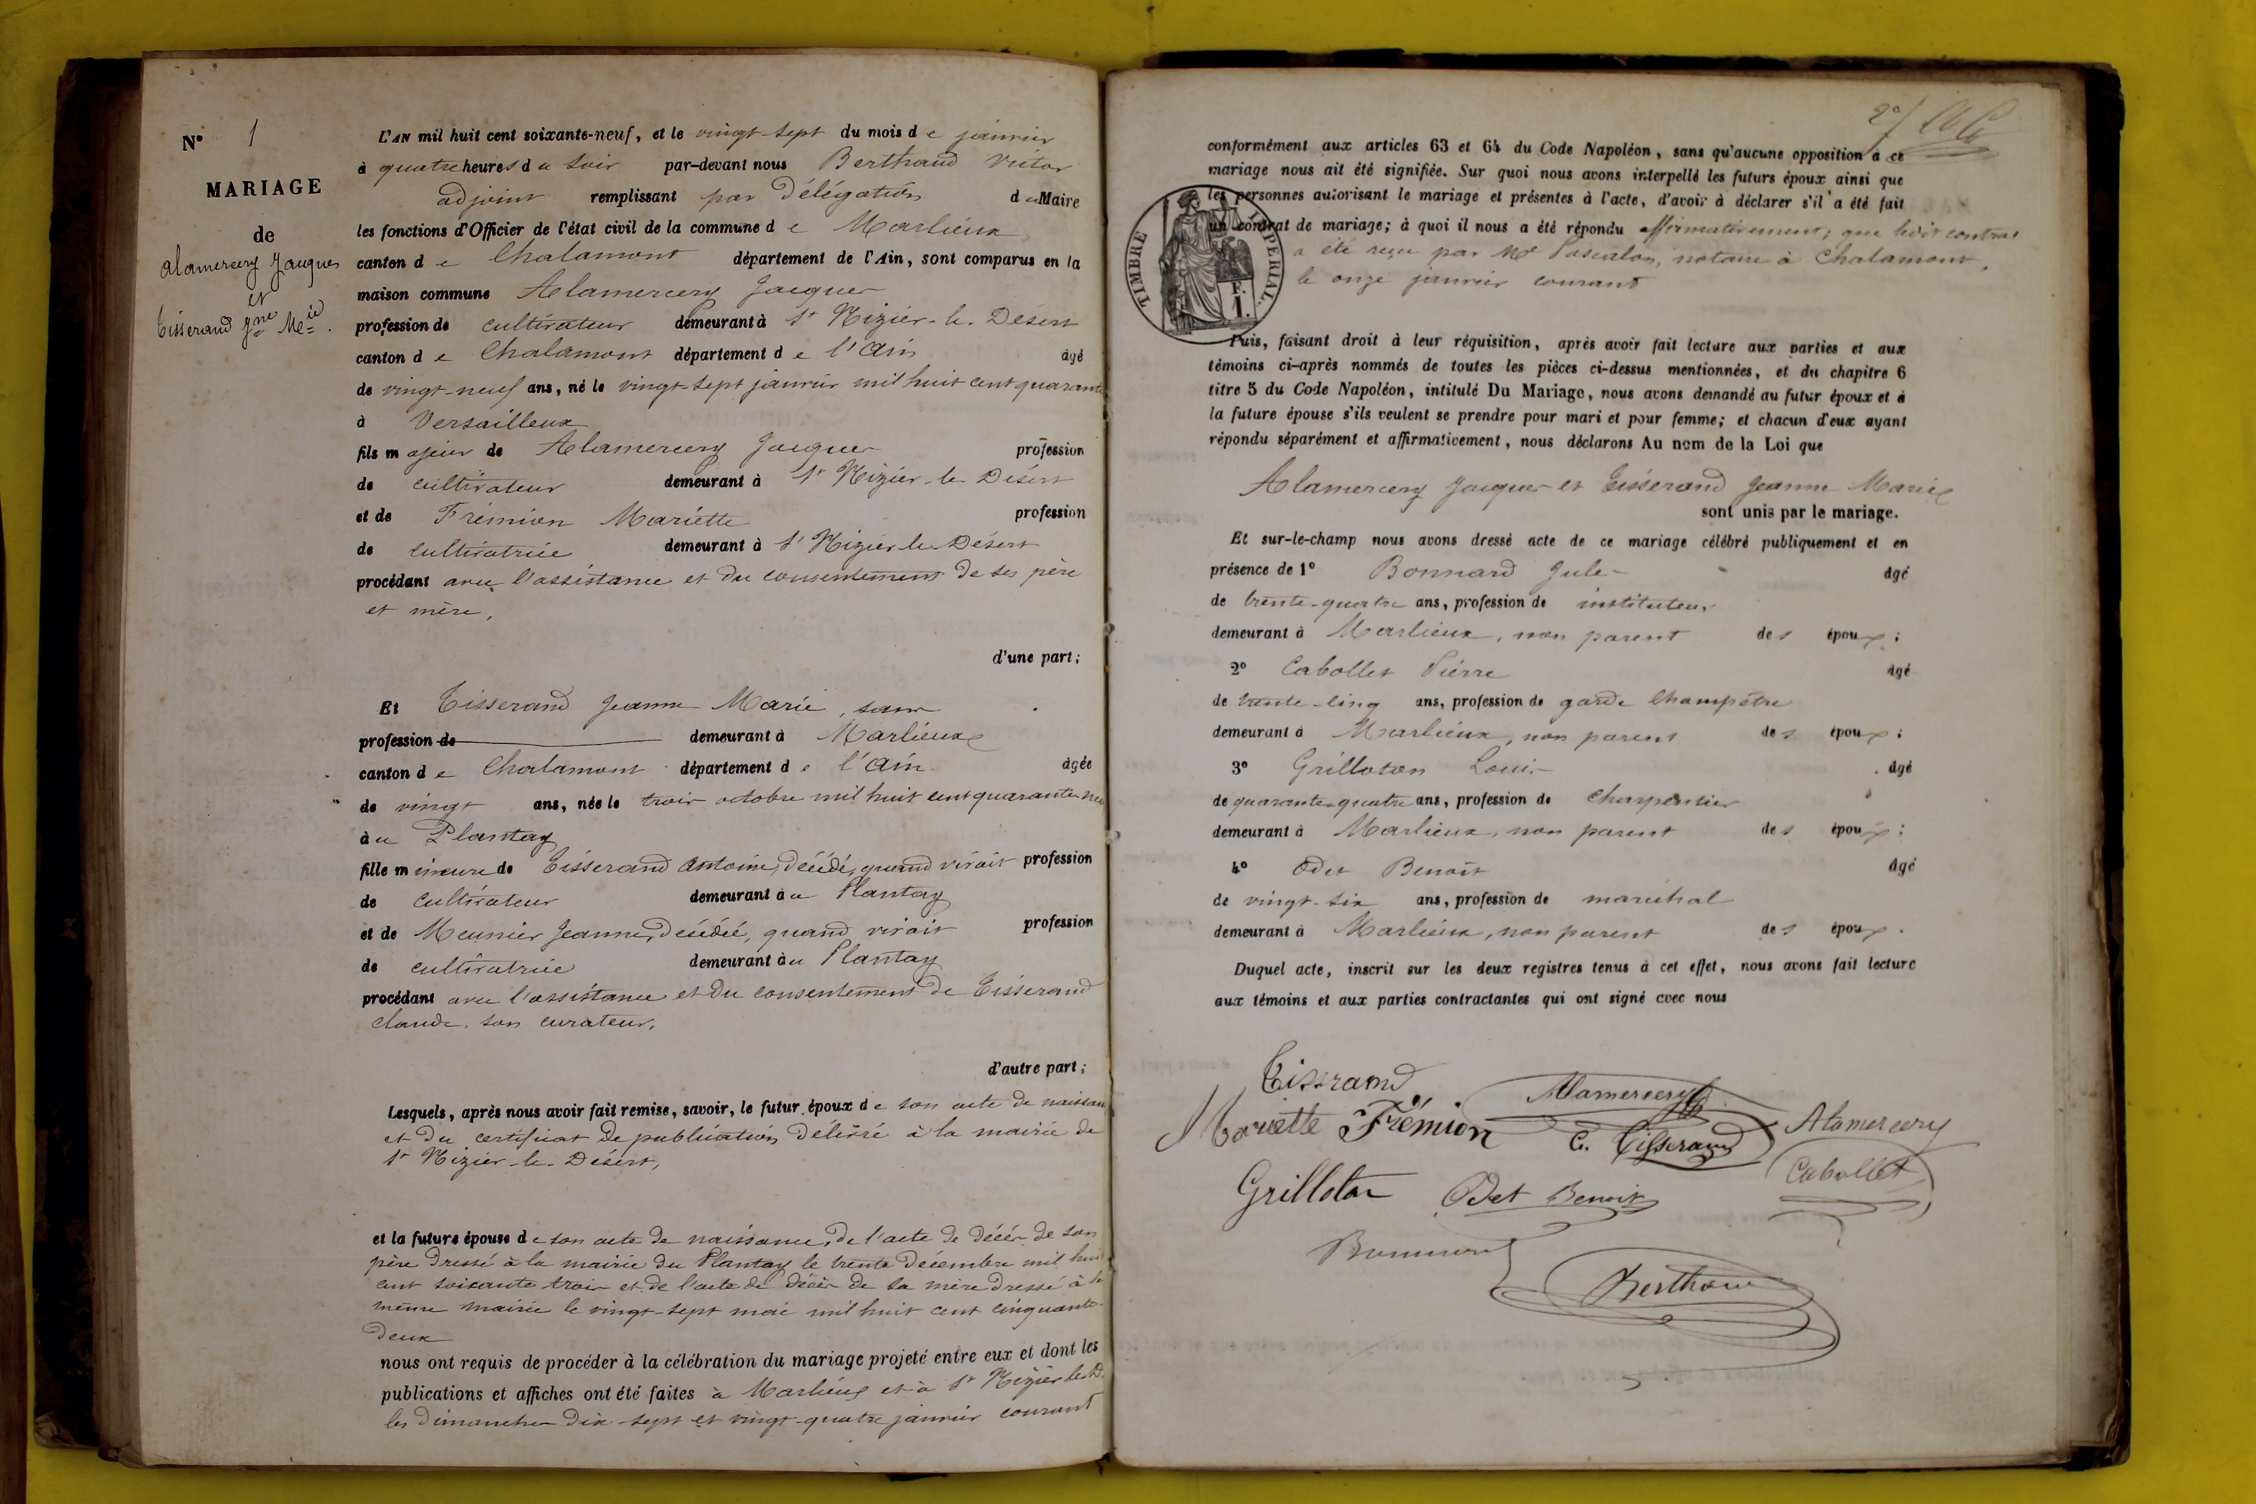 N° 1
MARIAGE
de
Alamercery Jacques
et
Tisserand Jne Mie.
L'AN mil huit cent soixante-neuf, et le vingt-sept du mois de janvier
à quatre heures du soir par-devant nous Berthaud Victor
adjoint remplissant par délégation du Maire
les fonctions d'Officier de l'état civil de la commune de Marlieux
canton de Chalamont département de l'Ain, sont comparus en la
maison commune Alamercery Jacques
profession de cultivateur demeurant à St Nizier-le-Désert
canton de Chalamont département de l'Ain âgé
de vingt-neuf ans, né le vingt-sept janvier mil huit cent quarante
à Versailleux
fils majeur de Alamercery Jacques profession
de cultivateur demeurant à St Nizier-le-Désert
et de Frémion Mariette profession
de cultivatrice demeurant à St Nizier-le-Désert
procédant avec l'assistance et du consentement de ses père
et mère,
d'une part;
Et Tisserand Jeanne Marie, sans
profession de demeurant à Marlieux
canton de Chalamont département de l'Ain âgée
de vingt ans, née le trois octobre mil huit cent quarante-neuf
au Plantay
fille mineure de Tisserand Antoine, décédé, quand vivait profession
de cultivateur demeurant au Plantay
et de Meunier Jeanne, décédée, quand vivait profession
de cultivatrice demeurant au Plantay
procédant avec l'assistance et du consentement de Tisserand
Claude, son curateur,
d'autre part;
Lesquels, après nous avoir fait remise, savoir, le futur époux de son acte de naissance
et du certificat de publication délivré à la mairie de
St Nizier-le-Désert,
et la future épouse de son acte de naissance, de l'acte de décès de son
père dressé à la mairie du Plantay le trente décembre mil huit
cent soixante trois et de l'acte de décès de sa mère dressé à la
même mairie le vingt-sept mai mil huit cent cinquante-
deux
nous ont requis de procéder à la célébration du mariage projeté entre eux et dont les
publications et affiches ont été faites à Marlieux et à St Nizier-le-D.
les dimanches dix-sept et vingt-quatre janvier courant
conformément aux articles 63 et 64 du Code Napoléon, sans qu'aucune opposition à ce
mariage nous ait été signifiée. Sur quoi nous avons interpellé les futurs époux ainsi que
les personnes autorisant le mariage et présentes à l'acte, d'avoir à déclarer s'il a été fait
un contrat de mariage; à quoi il nous a été répondu affirmativement; que ledit contrat
a été reçu par Me Pascalon, notaire à Chalamont,
le onze janvier courant
TIMBRE IMPERIAL.
F.
1.
Puis, faisant droit à leur réquisition, après avoir fait lecture aux parties et aux
témoins ci-après nommés de toutes les pièces ci-dessus mentionnées, et du chapitre 6
titre 5 du Code Napoléon, intitulé Du Mariage, nous avons demandé au futur époux et à
la future épouse s'ils veulent se prendre pour mari et pour femme; et chacun d'eux ayant
répondu séparément et affirmativement, nous déclarons Au nom de la Loi que
Alamercery Jacques et Tisserand Jeanne Marie
sont unis par le mariage.
Et sur-le-champ nous avons dressé acte de ce mariage célébré publiquement et en
présence de 1° Bonnard Jules âgé
de trente-quatre ans, profession de instituteur
demeurant à Marlieux, non parent des époux;
2° Cabollet Pierre âgé
de trente-cinq ans, profession de garde champêtre
demeurant à Marlieux, non parent des époux;
3° Grilloton Louis âgé
de quarante-quatre ans, profession de charpentier
demeurant à Marlieux, non parent des époux;
4° Odet Benoit âgé
de vingt-six ans, profession de maréchal
demeurant à Marlieux, non parent des époux.
Duquel acte, inscrit sur les deux registres tenus à cet effet, nous avons fait lecture
aux témoins et aux parties contractantes qui ont signé avec nous
Tisserand Alamercery
Mariette Frémion C. Tisserand Alamercery
Grilloton Odet Benoit Cabollet
Bonnard
Berthaud